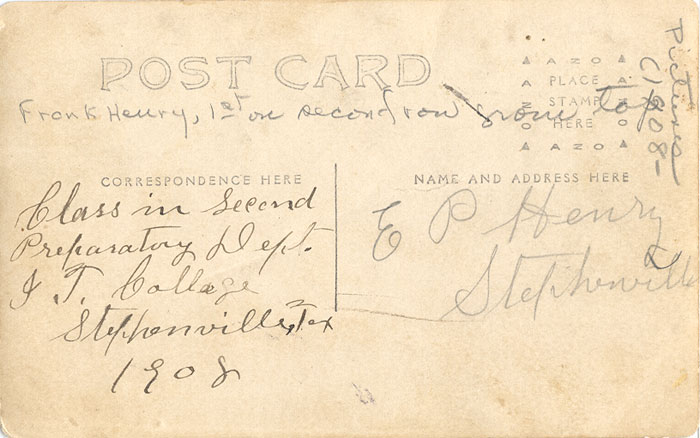 POST CARD
AZO
PLACE
STAMP
HERE
AZO
Frank Henry, 1st on second row from top
Picture
1908-
CORRESPONDENCE HERE
Class in Second
Preparatory Dept.
J. T. College
Stephenville, Tex
1908
NAME AND ADDRESS HERE
E P Henry
Stephenville